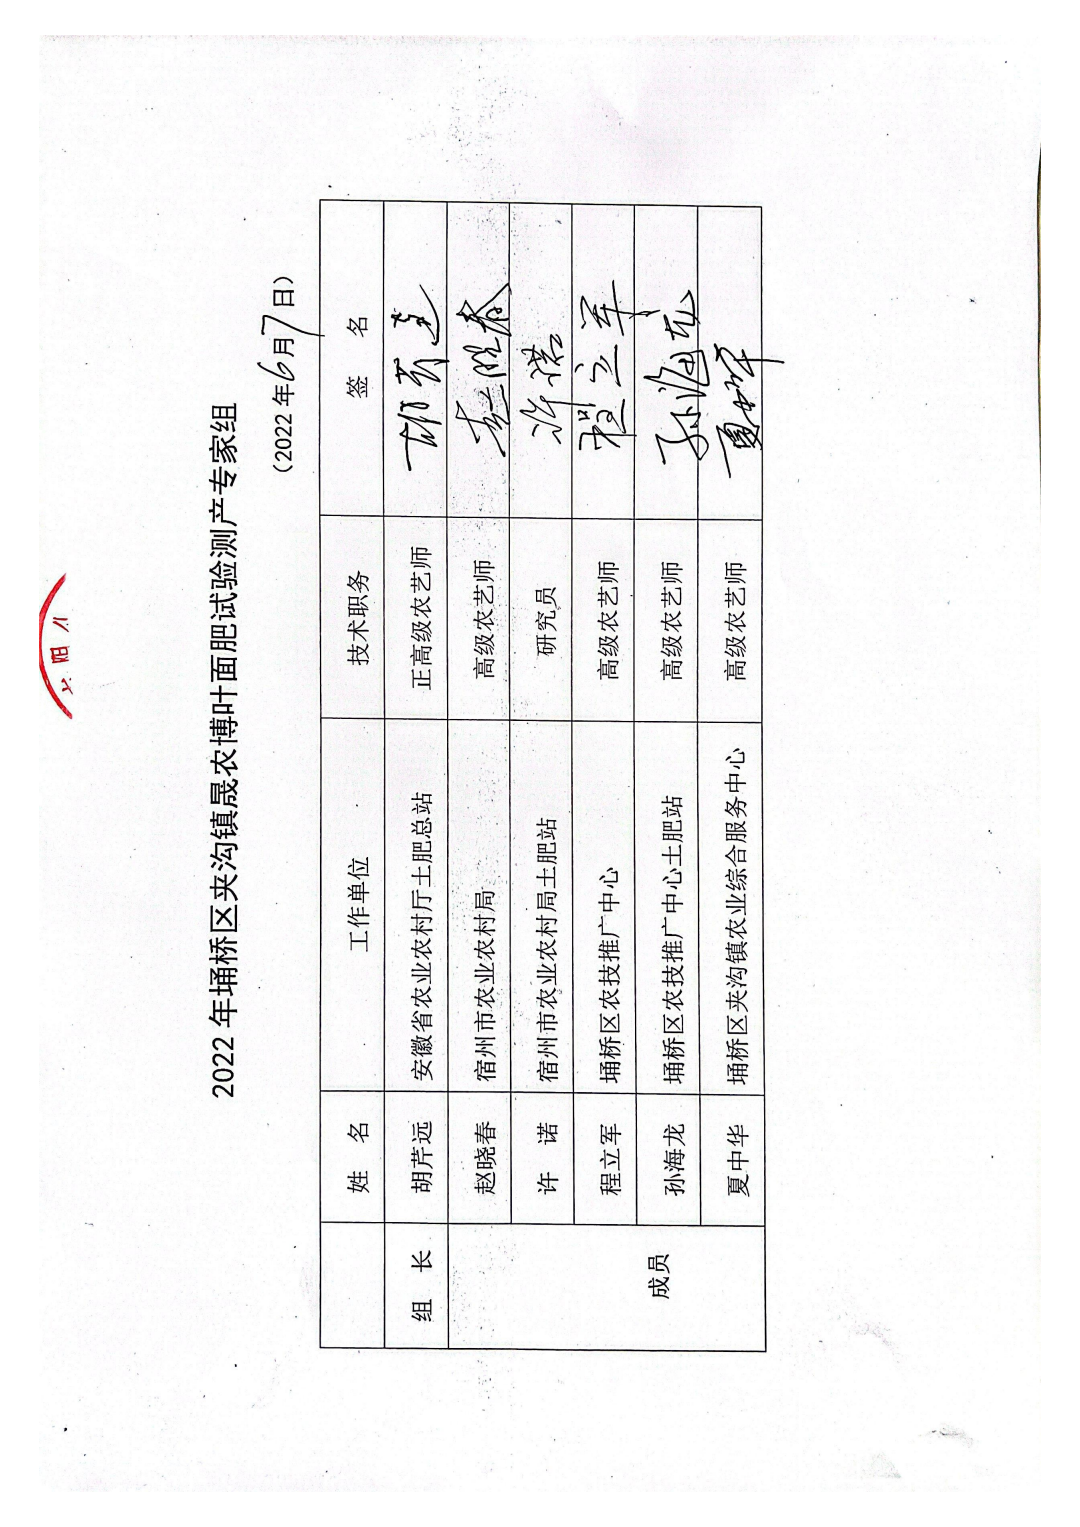 2022年埇桥区夹沟镇晟农博叶面肥试验测产专家组
（2022年6月7日）
姓 名 工作单位 技术职务 签 名
组 长 胡芹远 安徽省农业农村厅土肥总站 正高级农艺师 胡芹远
成员 赵晓春 宿州市农业农村局 高级农艺师 赵晓春
许 诺 宿州市农业农村局土肥站 研究员 许诺
程立军 埇桥区农技推广中心 高级农艺师 程立军
孙海龙 埇桥区农技推广中心土肥站 高级农艺师 孙海龙
夏中华 埇桥区夹沟镇农业综合服务中心 高级农艺师 夏中华